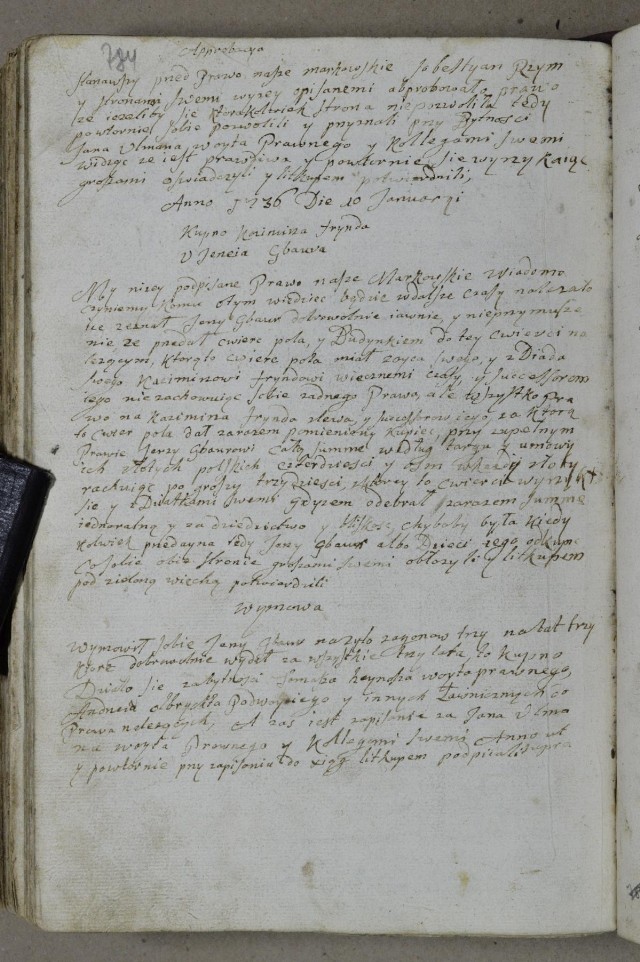 784
Approbacya
Stanąwszy pred Prawo nasze markowskie Sobestyan Rzym
y stronami swemi wyzey opisanemi abprobowało prawo
ze iezeliby sie ktorakolwiek strona nie pozwoliła tedy
powtornie sobie pozwolili y przyznali przy Bytnosci
Jana Ulmana woyta Prawnego y Kollegami swemi
widząc ze iest prawdziwa y powtornie sie wyrzykaiąc
groszami oswiadczyli y litkupem potwierdzili,
Anno 1736 Die 10 Januarij
Kupno Kazimirza Frynda
U Jerzego Gbaura
My nizey podpisane Prawo nasze Markowskie Wiadomo
czyniemy komu o tym wiedziec będzie w dalsze czasy nalezało
ize zeznał Jerzy Gbaur dobrowolnie iawnie, y nieprzymusze
nie ze przedał cwierc pola, y Budynkiem do tey cwierci na
lezącym, ktorą to cwierc pola miał zoyca swego, y z Dziada
swego Kazimirzowi Fryndowi wiecznemi czasy, y successorom
iego nie zachowuiąc sobie zadnego Prawa, ale wszystko Pra
wo na Kazimirza Frynda zlewa y successorow iego za ktorą
to cwierc pola dał zarazem pomieniony Kupiec przy zupełnym
Prawie Jerzy Gbaurowi całą summe według targu y umowy
ich złotych polskich czterdziesci y osm w kazdy złoty
rachuiąc po groszy trzydziesci, z ktorey to cwierci wyrzyka
sie y z Dziatkami swemi gdyz on odebrał zarazem summe
iednoralną y za dziedzictwo y bliskosc, chybaby była kiedy
kolwiek przedayna tedy Jerzy Gbaur albo Dzieci iego odkupic
Co sobie obie stronie groszami swemi obłozyli y litkupem
pod zieloną wiechą potwierdzili
Wymowa
Wymowił sobie Jerzy Gbaur na zyto zagonow trzy na lat trzy
ktore dobrowolnie wydał za wszystkie trzy lata, to Kupno
Działo sie za bytnosci Tomasza Heynsza woyta prawnego,
Andrzeia Olbrychta Podwoyciego y innych Ławnicznych do
Prawa nalezących, A zas iest zapisanie za Jana Ulma
na woyta Prawnego y Kollegami swemi Anno ut
y powtornie przy zapisaniu do xiąg litkupem podpicali supra